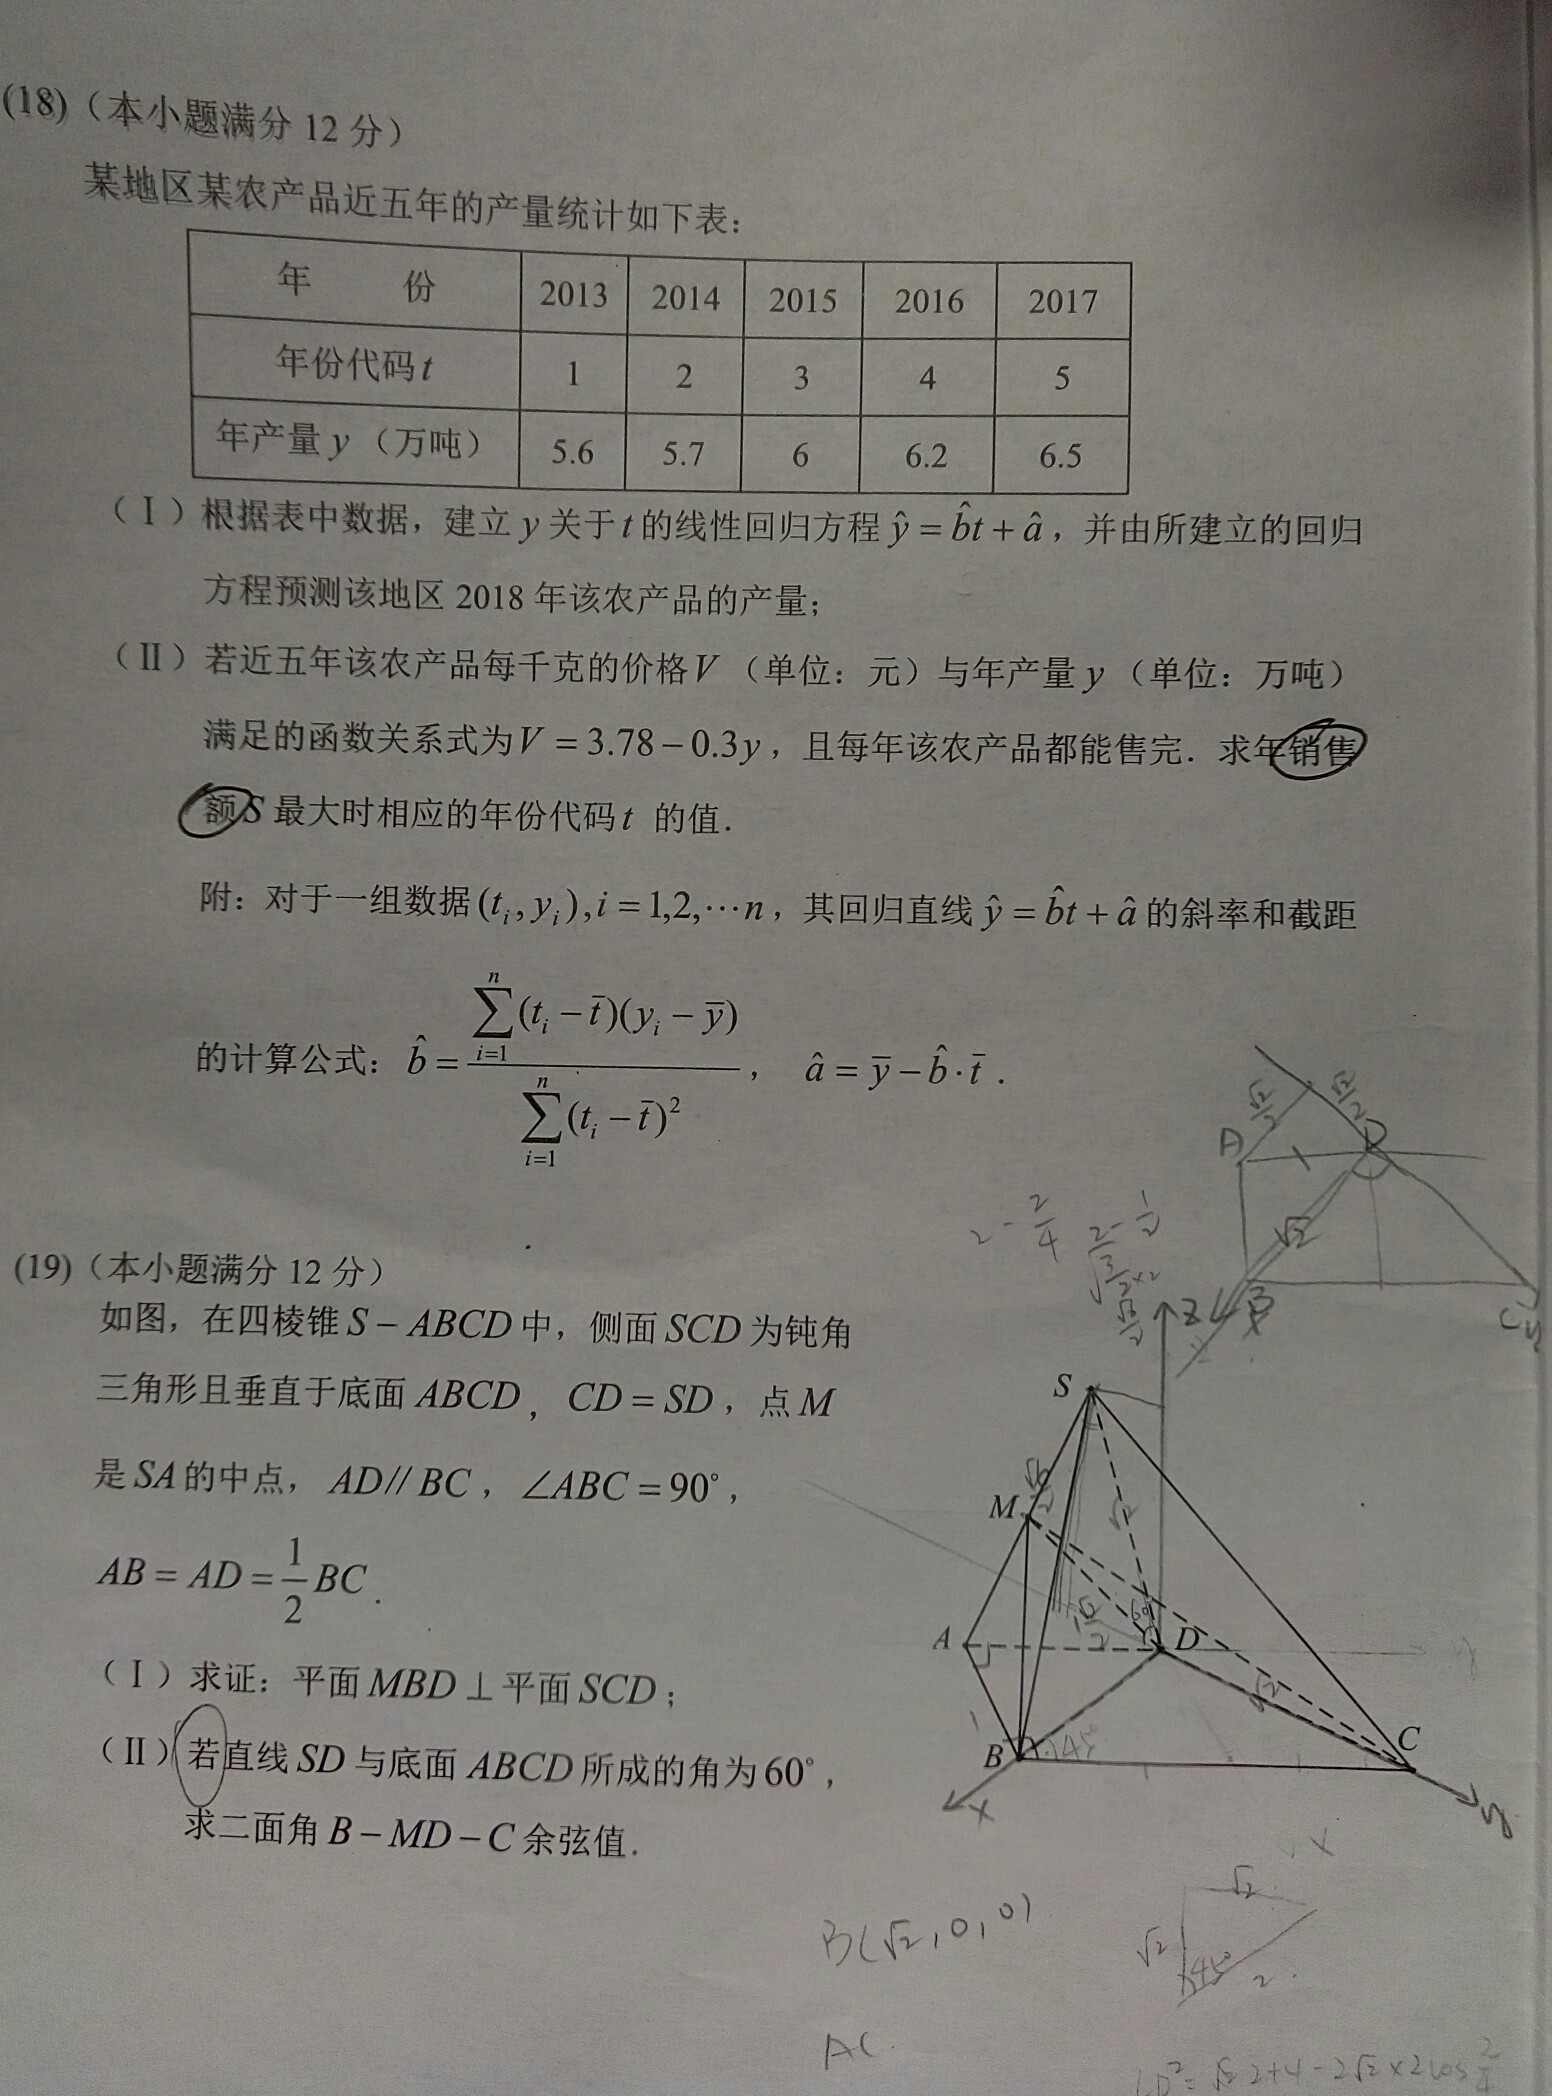 (18)（本小题满分 12 分）
某地区某农产品近五年的产量统计如下表：
年 份 2013 2014 2015 2016 2017
年份代码 t 1 2 3 4 5
年产量 y（万吨） 5.6 5.7 6 6.2 6.5
（Ⅰ）根据表中数据，建立 y 关于 t 的线性回归方程 ŷ = b̂t + â，并由所建立的回归
方程预测该地区 2018 年该农产品的产量；
（Ⅱ）若近五年该农产品每千克的价格 V（单位：元）与年产量 y（单位：万吨）
满足的函数关系式为 V = 3.78 − 0.3y，且每年该农产品都能售完．求年销售
额 S 最大时相应的年份代码 t 的值．
附：对于一组数据 (tᵢ, yᵢ), i = 1,2,⋯n，其回归直线 ŷ = b̂t + â 的斜率和截距
的计算公式：b̂ = ∑ⁿᵢ₌₁(tᵢ − t̄)(yᵢ − ȳ) / ∑ⁿᵢ₌₁(tᵢ − t̄)²， â = ȳ − b̂·t̄．
(19)（本小题满分 12 分）
如图，在四棱锥 S − ABCD 中，侧面 SCD 为钝角
三角形且垂直于底面 ABCD，CD = SD，点 M
是 SA 的中点，AD// BC，∠ABC = 90°，
AB = AD = 1/2 BC．
（Ⅰ）求证：平面 MBD ⊥ 平面 SCD；
（Ⅱ）若直线 SD 与底面 ABCD 所成的角为 60°，
求二面角 B − MD − C 余弦值．
S
M
A
D
B
C
z
x
y
45°
B(√2,0,0)
√2
√2
45°
2